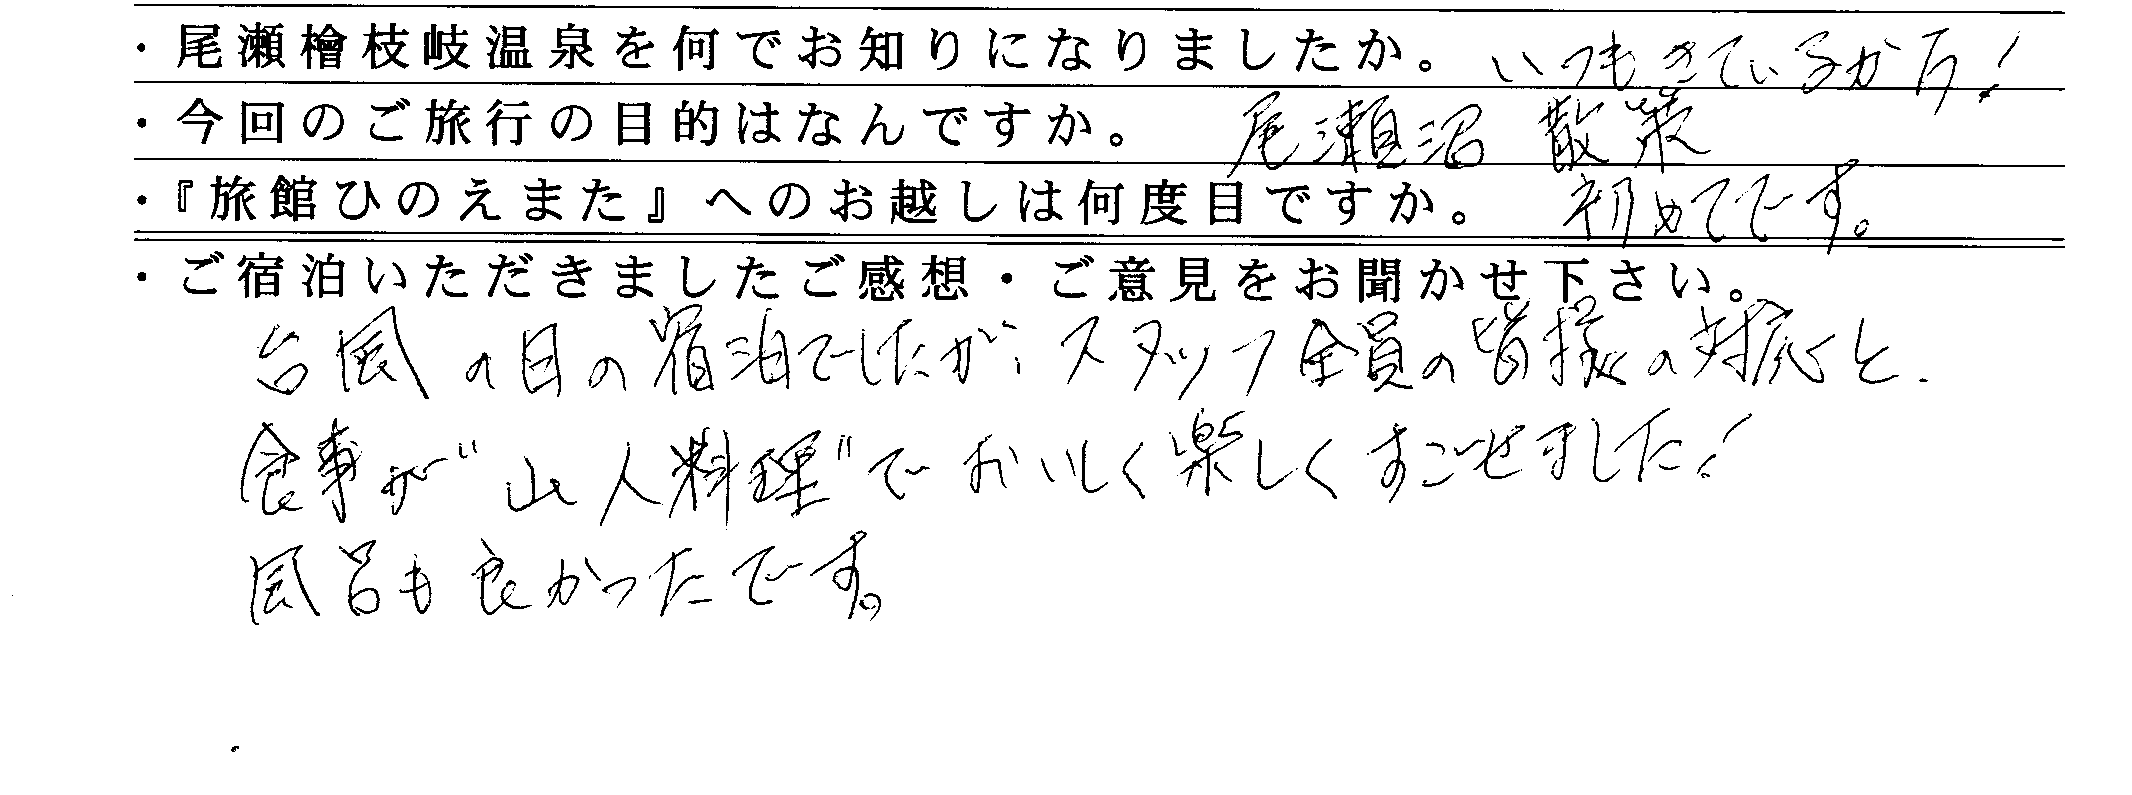 ・尾瀬檜枝岐温泉を何でお知りになりましたか。 いつもきているから！
・今回のご旅行の目的はなんですか。 尾瀬沼 散策
・『旅館ひのえまた』へのお越しは何度目ですか。 初めてです。
・ご宿泊いただきましたご感想・ご意見をお聞かせ下さい。
台風の目の宿泊でしたが、スタッフ全員の皆様の対応と、
食事が"山人料理"でおいしく楽しくすごせました！
風呂も良かったです。